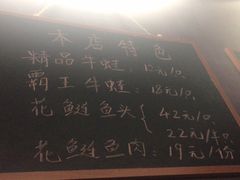 本店特色
精品牛蛙：10元/只
霸王牛蛙：18元/只
花鲢鱼头 42元/只
22元/半只
花鲢鱼肉：19元/份